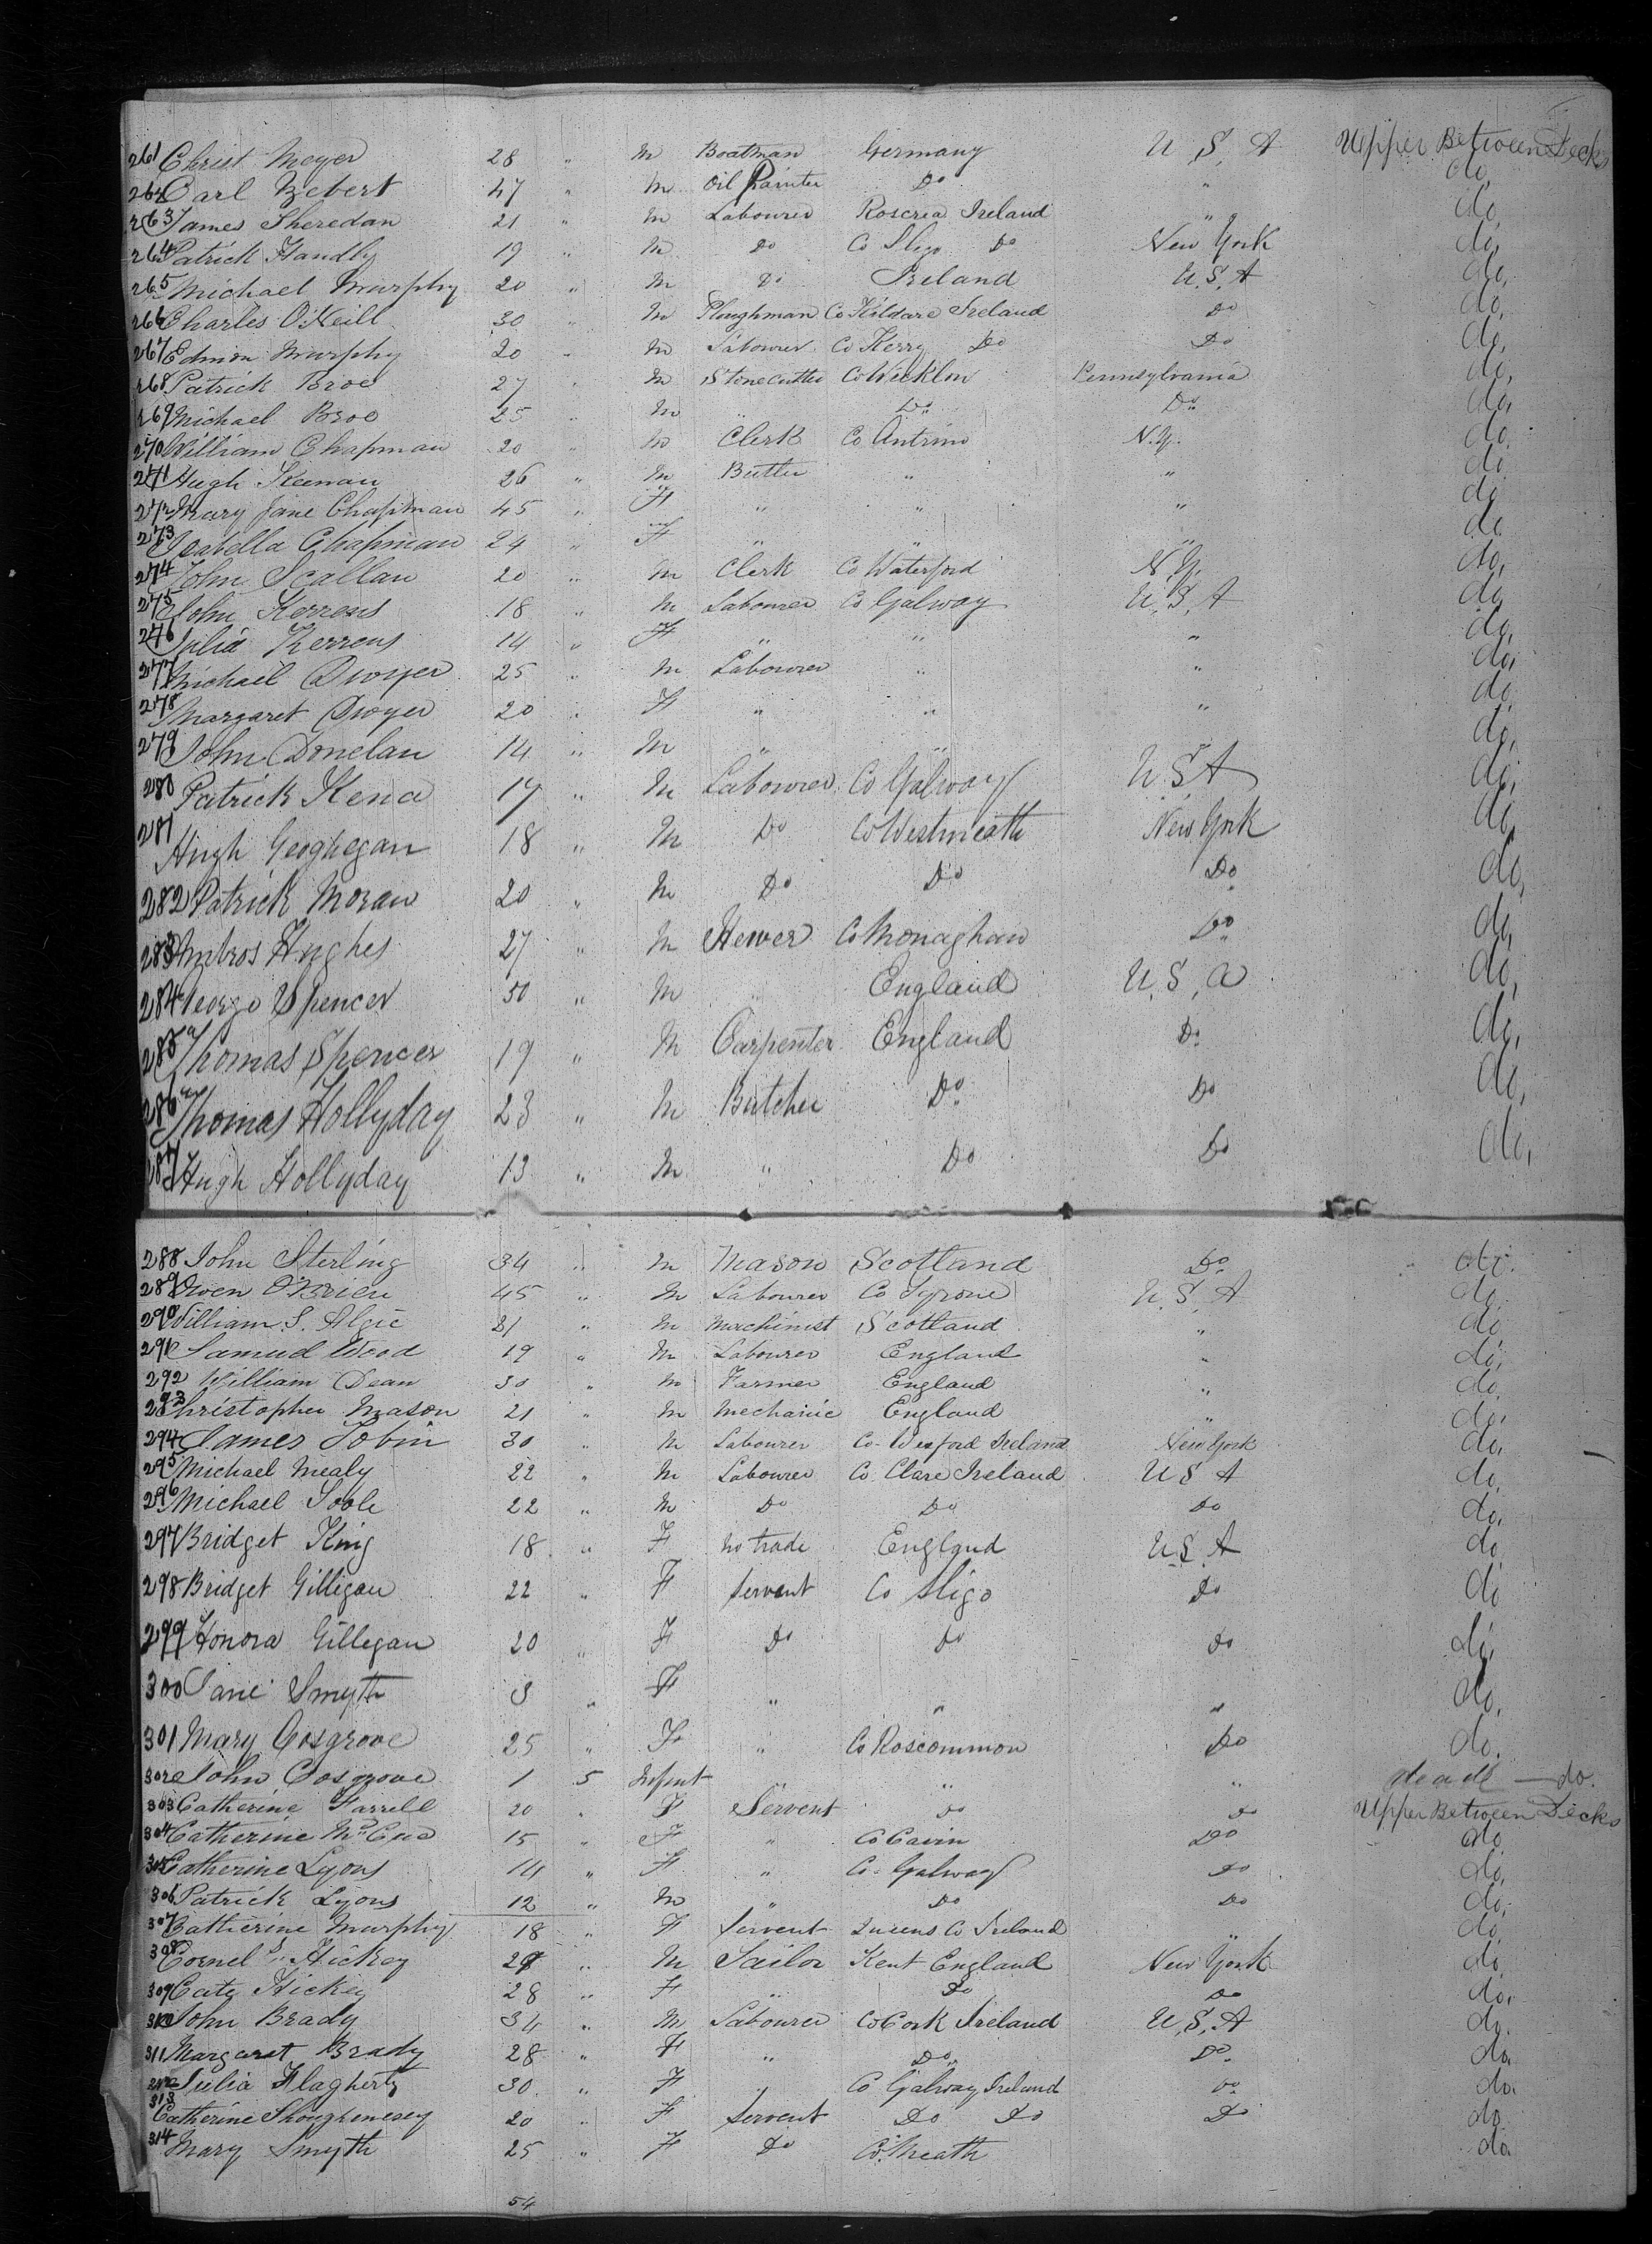 261 Christ Meyer 28 " M Boatman Germany U, S, A Upper Between Decks
262 Carl Zebert 47 " M Oil Painter Do " do,
263 James Sheredan 21 " M Labourer Roscrea Ireland " do,
264 Patrick Handly 19 " M Do Co Sligo Do New York do,
265 Michael Murphy 20 " M Do Ireland U.S.A do,
266 Charles O'Neill 30 " M Ploughman Co Kildare Ireland Do do,
267 Edmon Murphy 20 " M Labourer Co Kerry Do Do do,
268 Patrick Broe 27 " M Stonecutter Co Wicklow Pennsylvania do,
269 Michael Broe 25 " M " Do Do do,
270 William Chapman 20 " M Clerk Co Antrim N.Y. do,
271 Hugh Keenan 26 " M Butler " " do
272 Mary Jane Chapman 45 " F " " " do
273 Isabella Chapman 24 " F " " " do
274 John Scallan 20 " M Clerk Co Waterford N.Y. do,
275 John Kerrens 18 " M Labourer Co Galway U.S.A do,
276 Julia Kerrens 14 " F " " " do,
277 Michael Dwyer 25 " M Labourer " " do,
278 Margaret Dwyer 20 " F " " " do,
279 John Donelan 14 " M " " " do,
280 Patrick Kena 17 " M Labourer Co Galway U.S.A do,
281 Hugh Geoghegan 18 " M Do Co Westmeath New York do,
282 Patrick Moran 20 " M Do Do Do do,
283 Ambros Hughes 27 " M Hewer Co Monaghan Do do,
284 George Spencer 50 " M " England U,S,A do,
285 Thomas Spencer 19 " M Carpenter England Do do,
286 Thomas Hollyday 23 " M Butcher Do Do do,
287 Hugh Hollyday 13 " M " Do Do do,
288 John Sterling 34 " M Mason Scotland Do do.
289 Owen O'Brien 45 " M Labourer Co Tyrone U.S,A do,
290 William S. Algie 21 " M Machinist Scotland " do,
291 Samuel Wood 19 " M Labourer England " do,
292 William Dean 30 " M Farmer England " do,
293 Christopher Mason 21 " M Mechanic England " do,
294 James Tobin 30 " M Labourer Co. Wexford Ireland New York do,
295 Michael Mealy 22 " M Labourer Co. Clare Ireland U S A do,
296 Michael Toole 22 " M Do Do Do do,
297 Bridget King 18 " F No trade England U.S.A do
298 Bridget Gilligan 22 " F Servent Co Sligo Do do
299 Honora Gillegan 20 " F Do Do Do do,
300 Jane Smyth 3 " F " " " do,
301 Mary Cosgrove 25 " F " Co Roscommon Do do.
302 John Cosgrove 1 5 Infent " " " dead — do.
303 Catherine Farrell 20 " F Servent Do Do Upper Between Decks
304 Catherine McCue 15 " F " Co Cavin Do do,
305 Catherine Lyons 14 " F " Co. Galway Do do,
306 Patrick Lyons 12 " M " Do Do do,
307 Catherine Murphy 18 " F Servent Queens Co Ireland " do,
308 Cornels. Hickey 29 " M Sailor Kent England New York do,
309 Cate Hickey 28 " F " Do Do do,
310 John Brady 34 " M Labourer Co Cork Ireland U,S,A do.
311 Margaret Brady 28 " F " Do Do do,
312 Julia Flagherty 30 " F " Co Galway Ireland Do do.
313 Catherine Shoughnesey 20 " F Servent Do Do Do do
314 Mary Smyth 25 " F Do Co. Meath do
54